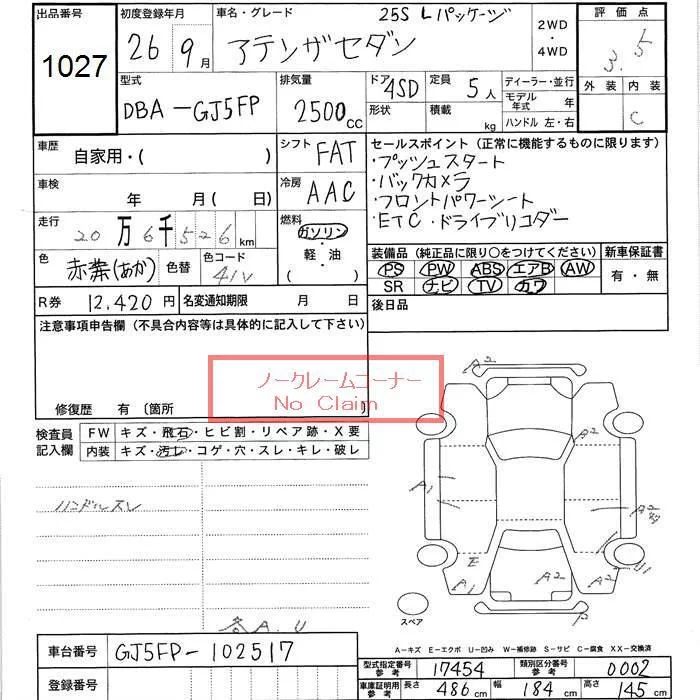 出品番号 初度登録年月 車名・グレード 25S Lパッケージ 2WD・4WD 評価点
1027 26 9月 アテンザセダン 3.5
型式 DBA-GJ5FP 排気量 2500cc ドア 4SD 形状 定員 5人 積載 kg ディーラー・並行 モデル年式 年 ハンドル 左・右 外装 内装 C
車歴 自家用・( ) シフト FAT セールスポイント(正常に機能するものに限ります)
・プッシュスタート
車検 年 月(日) 冷房 AAC ・バックカメラ
・フロントパワーシート
走行 20万6千526km 燃料 ガソリン・軽・油( ) ・ETC・ドライブリコダー
色 赤葉(あか) 色替 色コード 41V 装備品(純正品に限り○をつけてください) 新車保証書
PS PW ABS エアB AW 有・無
SR ナビ TV カワ
R券 12,420円 名変通知期限 月 日 後日品
注意事項申告欄(不具合内容等は具体的に記入して下さい)
ノークレームコーナー
No Claim
修復歴 有〔箇所
検査員記入欄 FW キズ・飛石・ヒビ割・リペア跡・X要
内装 キズ・汚れ・コゲ・穴・スレ・キレ・破レ
ハンドルスレ
A2
B2
A1
A2
E
A1
A2
A2
U1
P
スペア
各A.U
A-キズ E-エクボ U-凹み W-補修跡 S-サビ C-腐食 XX-交換済
車台番号 GJ5FP-102517
登録番号
型式指定番号参考 17454 類別区分番号参考 0002
車庫証明用参考 長さ 486cm 幅 184cm 高さ 145cm